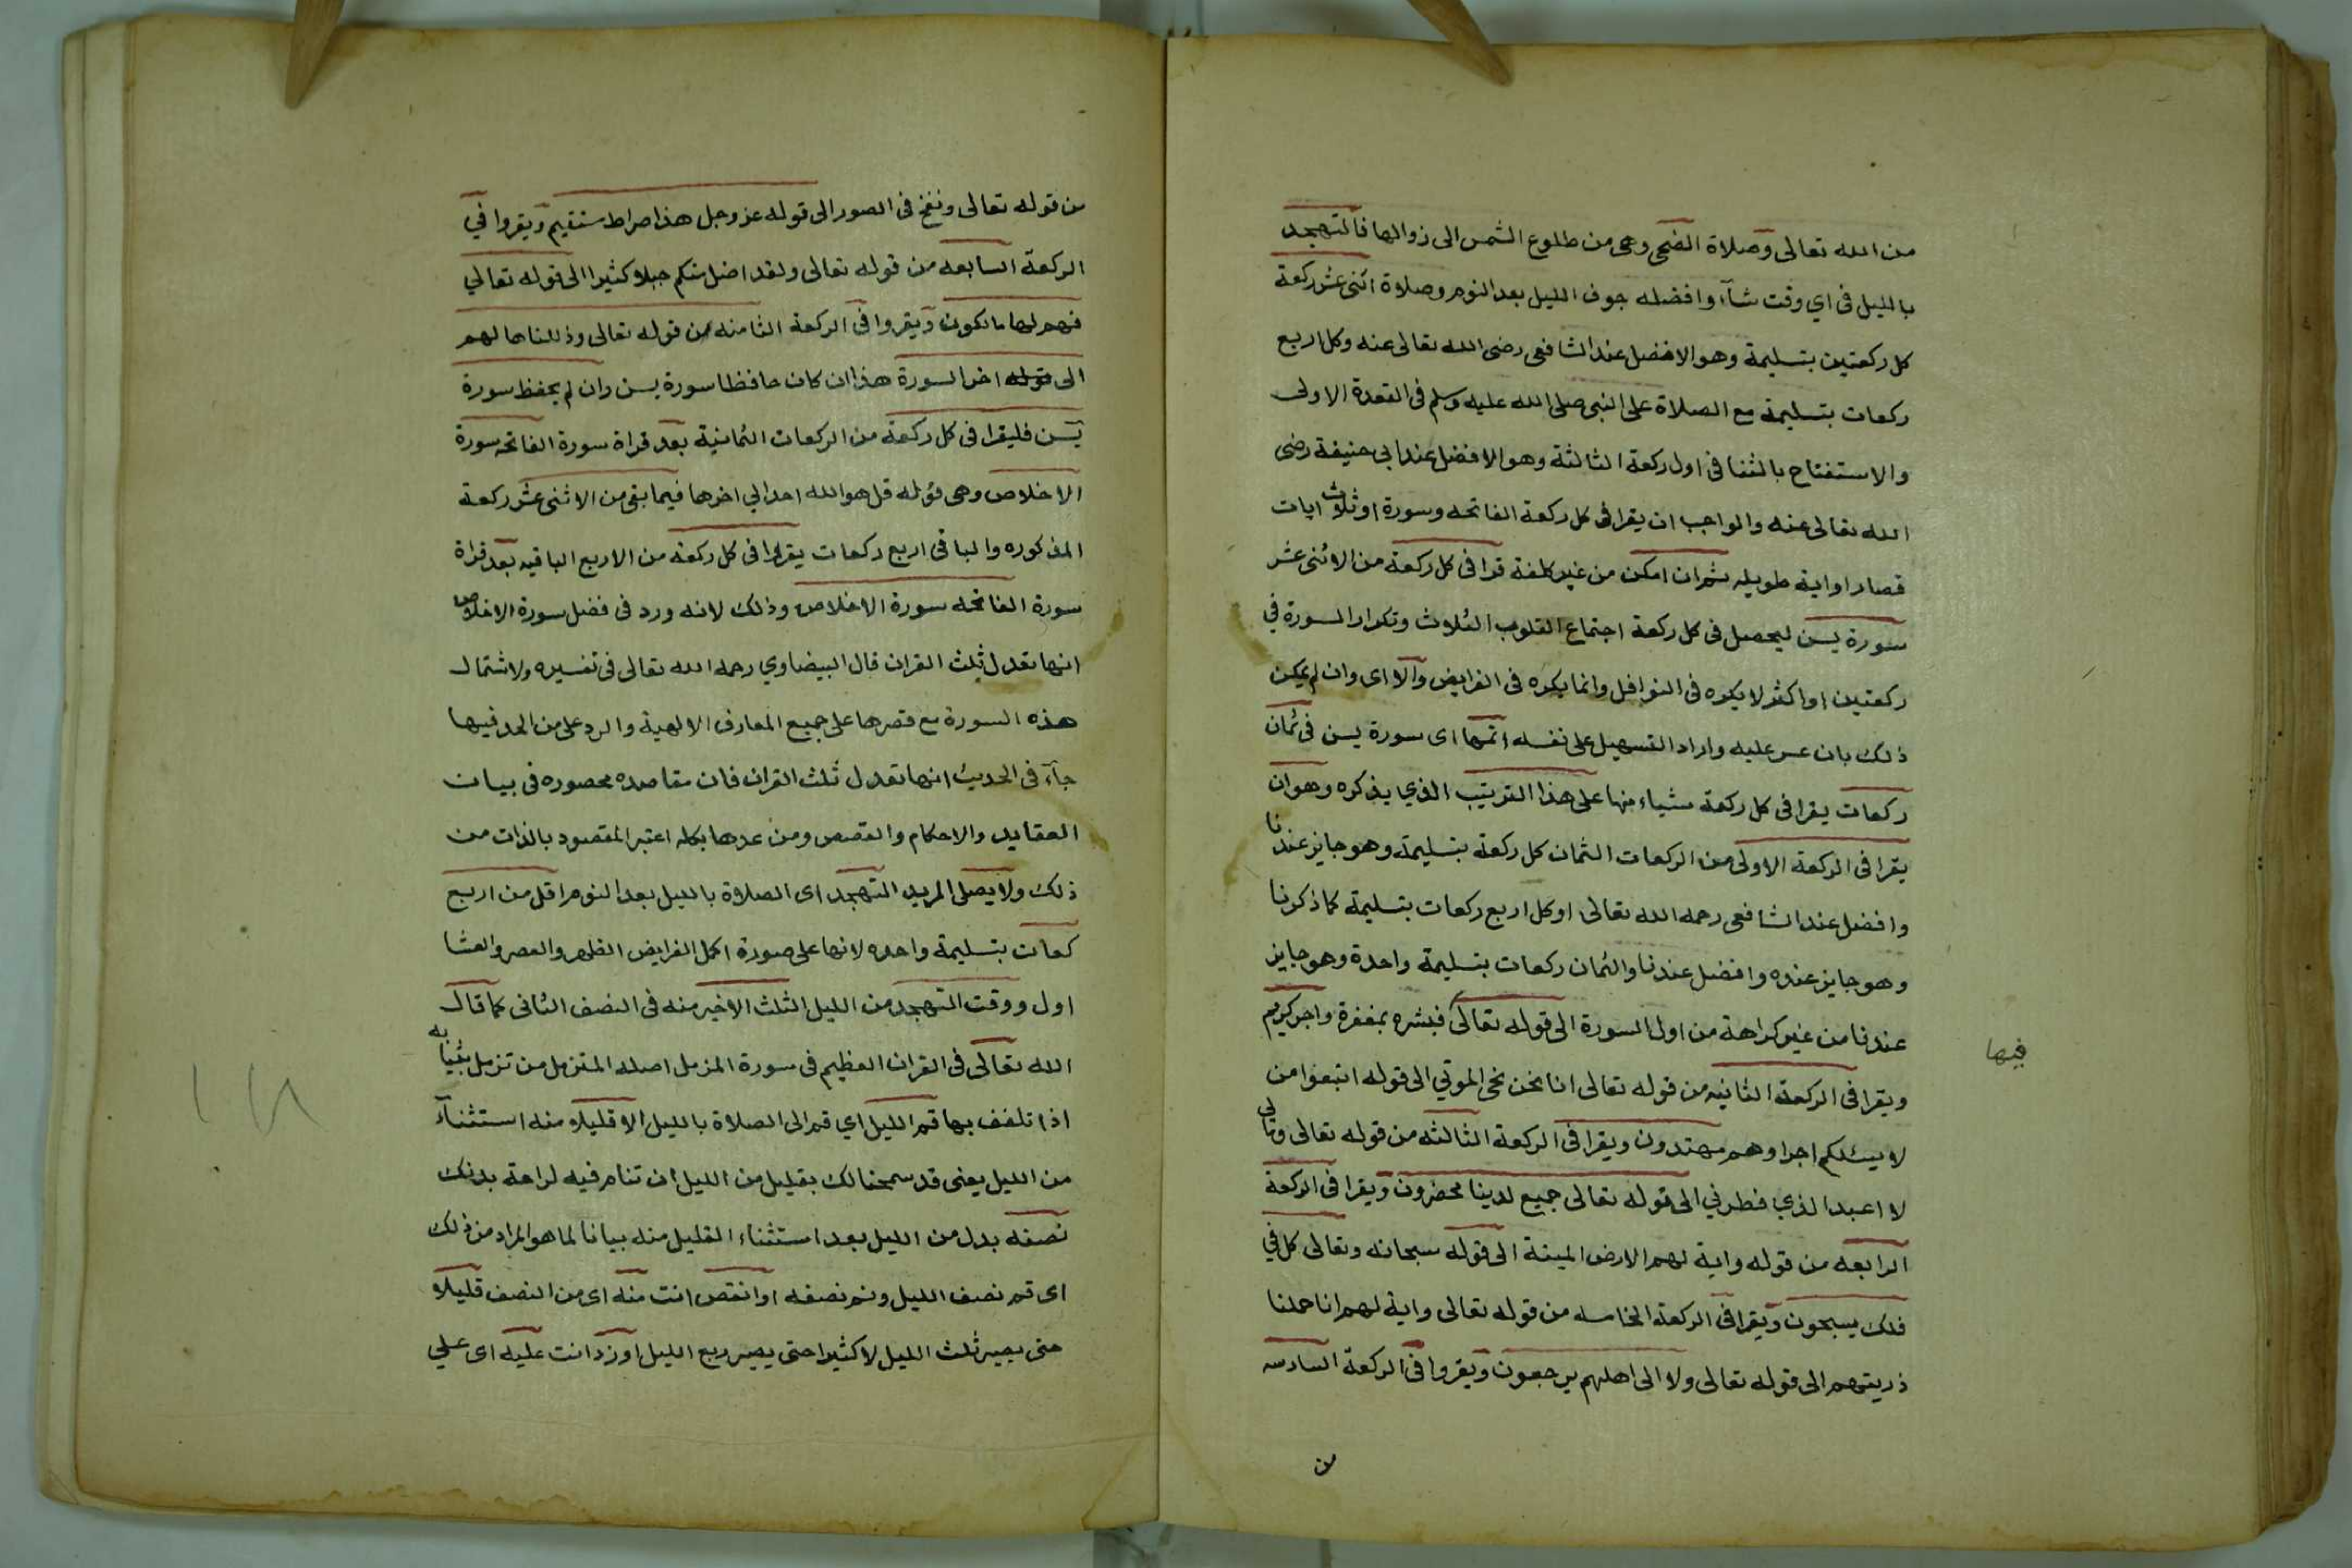 من الله تعالى وصلاة الضحى وهى من طلوع الشمس الى زوالها فالتهجد
بالليل فى اي وقت شآء وافضله جوف الليل بعد النوم وصلاة اثنى عشر ركعة
كل ركعتين بتسليمة وهو الافضل عند الشافعى رضى الله تعالى عنه وكل اربع
ركعات بتسليمة مع الصلاة على النبى صلى الله عليه وسلم فى القعدة الاولى
والاستفتاح بالثنا فى اول ركعة الثالثة وهو الافضل عند ابى حنيفة رضى
الله تعالى عنه والواجب ان يقرا فى كل ركعة الفاتحه وسورة او ثلاث ايات
قصار او اية طويله ثم ان امكن من غير كلفة قرا فى كل ركعة من الاثنى عشر
سورة يسن ليحصل فى كل ركعة اجتماع القلوب الثلاث وتكرار السورة في
ركعتين او اكثر لا يكره فى النوافل وانما يكره فى الفرايض والا اى وان لم يمكن
ذلك بان عسر عليه واراد التسهيل على نفسه اتمها اى سورة يسن فى ثمان
ركعات يقرا فى كل ركعة شياء منها على هذا الترتيب الذي يذكره وهو ان
يقرا فى الركعة الاولى من الركعات الثمان كل ركعة بتسليمة وهو جايز عندنا
وافضل عند الشافعى رحمه الله تعالى او كل اربع ركعات بتسليمة كما ذكرنا
وهو جايز عنده وافضل عندنا والثمان ركعات بتسليمة واحدة وهو جايز
عندنا من غير كراهة من اول السورة الى قوله تعالى فبشره بمغفرة واجر كريم
فيها
ويقرا فى الركعة الثانيه من قوله تعالى انا نحن نحى الموتي الى قوله اتبعوا من
لا يسئلكم اجرا وهم مهتدون ويقرا فى الركعة الثالثه من قوله تعالى ومالى
لا اعبد الذي فطرني الى قوله تعالى جميع لدينا محضرون ويقرا فى الركعة
الرابعه من قوله واية لهم الارض الميتة الى قوله سبحانه وتعالى كل في
فلك يسبحون ويقرا فى الركعة الخامسه من قوله تعالى واية لهم انا حملنا
ذريتهم الى قوله تعالى ولا الى اهلهم يرجعون ويقروا فى الركعة السادسه
من
من قوله تعالى ونفخ فى الصور الى قوله عز وجل هذا صراط مستقيم ويقروا في
الركعة السابعه من قوله تعالى ولقد اضل منكم جبلا كثيرا الى قوله تعالي
فهم لها مالكون ويقروا فى الركعة الثامنه من قوله تعالى وذللناها لهم
الى قوله اخر السورة هذا ان كان حافظا سورة يسن وان لم يحفظ سورة
يسن فليقرا فى كل ركعة من الركعات الثمانية بعد قراة سورة الفاتحه سورة
الاخلاص وهى قوله قل هو الله احد الي اخرها فيما بقى من الاثنى عشر ركعة
المذكوره والباقى اربع ركعات يقرا فى كل ركعة من الاربع الباقيه بعد قراة
سورة الفاتحه سورة الاخلاص وذلك لانه ورد فى فضل سورة الاخلاص
انها تعدل ثلث القران قال البيضاوي رحمه الله تعالى فى تفسيره ولاشتمال
هذه السورة مع قصرها على جميع المعارف الالهية والرد على من الحد فيها
جآء فى الحديث انها تعدل ثلث القران فان مقاصده محصوره فى بيان
العقايد والاحكام والقصص ومن عدها بكله اعتبر المقصود بالذات من
ذلك ولا يصلى المريد التهجد اى الصلاة بالليل بعد النوم اقل من اربع
كعات بتسليمة واحده لانها على صورة اكمل الفرايض الظهر والعصر والعشا
اول ووقت التهجد من الليل الثلث الاخير منه فى النصف الثانى كما قال
الله تعالى فى القران العظيم فى سورة المزمل اصله المتزمل من تزمل بثيابه
اذا تلفف بها قم الليل اي قم الى الصلاة بالليل الا قليلا منه استثنآء
من الليل يعنى قد سمحنا لك بقليل من الليل ان تنام فيه لراحة بدنك
نصفه بدل من الليل بعد استثناء القليل منه بيانا لما هو المراد من ذلك
اى قم نصف الليل ونم نصفه او انقص انت منه اى من النصف قليلا
حتى يصير ثلث الليل لا كثيرا حتى يصير ربع الليل او زد انت عليه اى علي